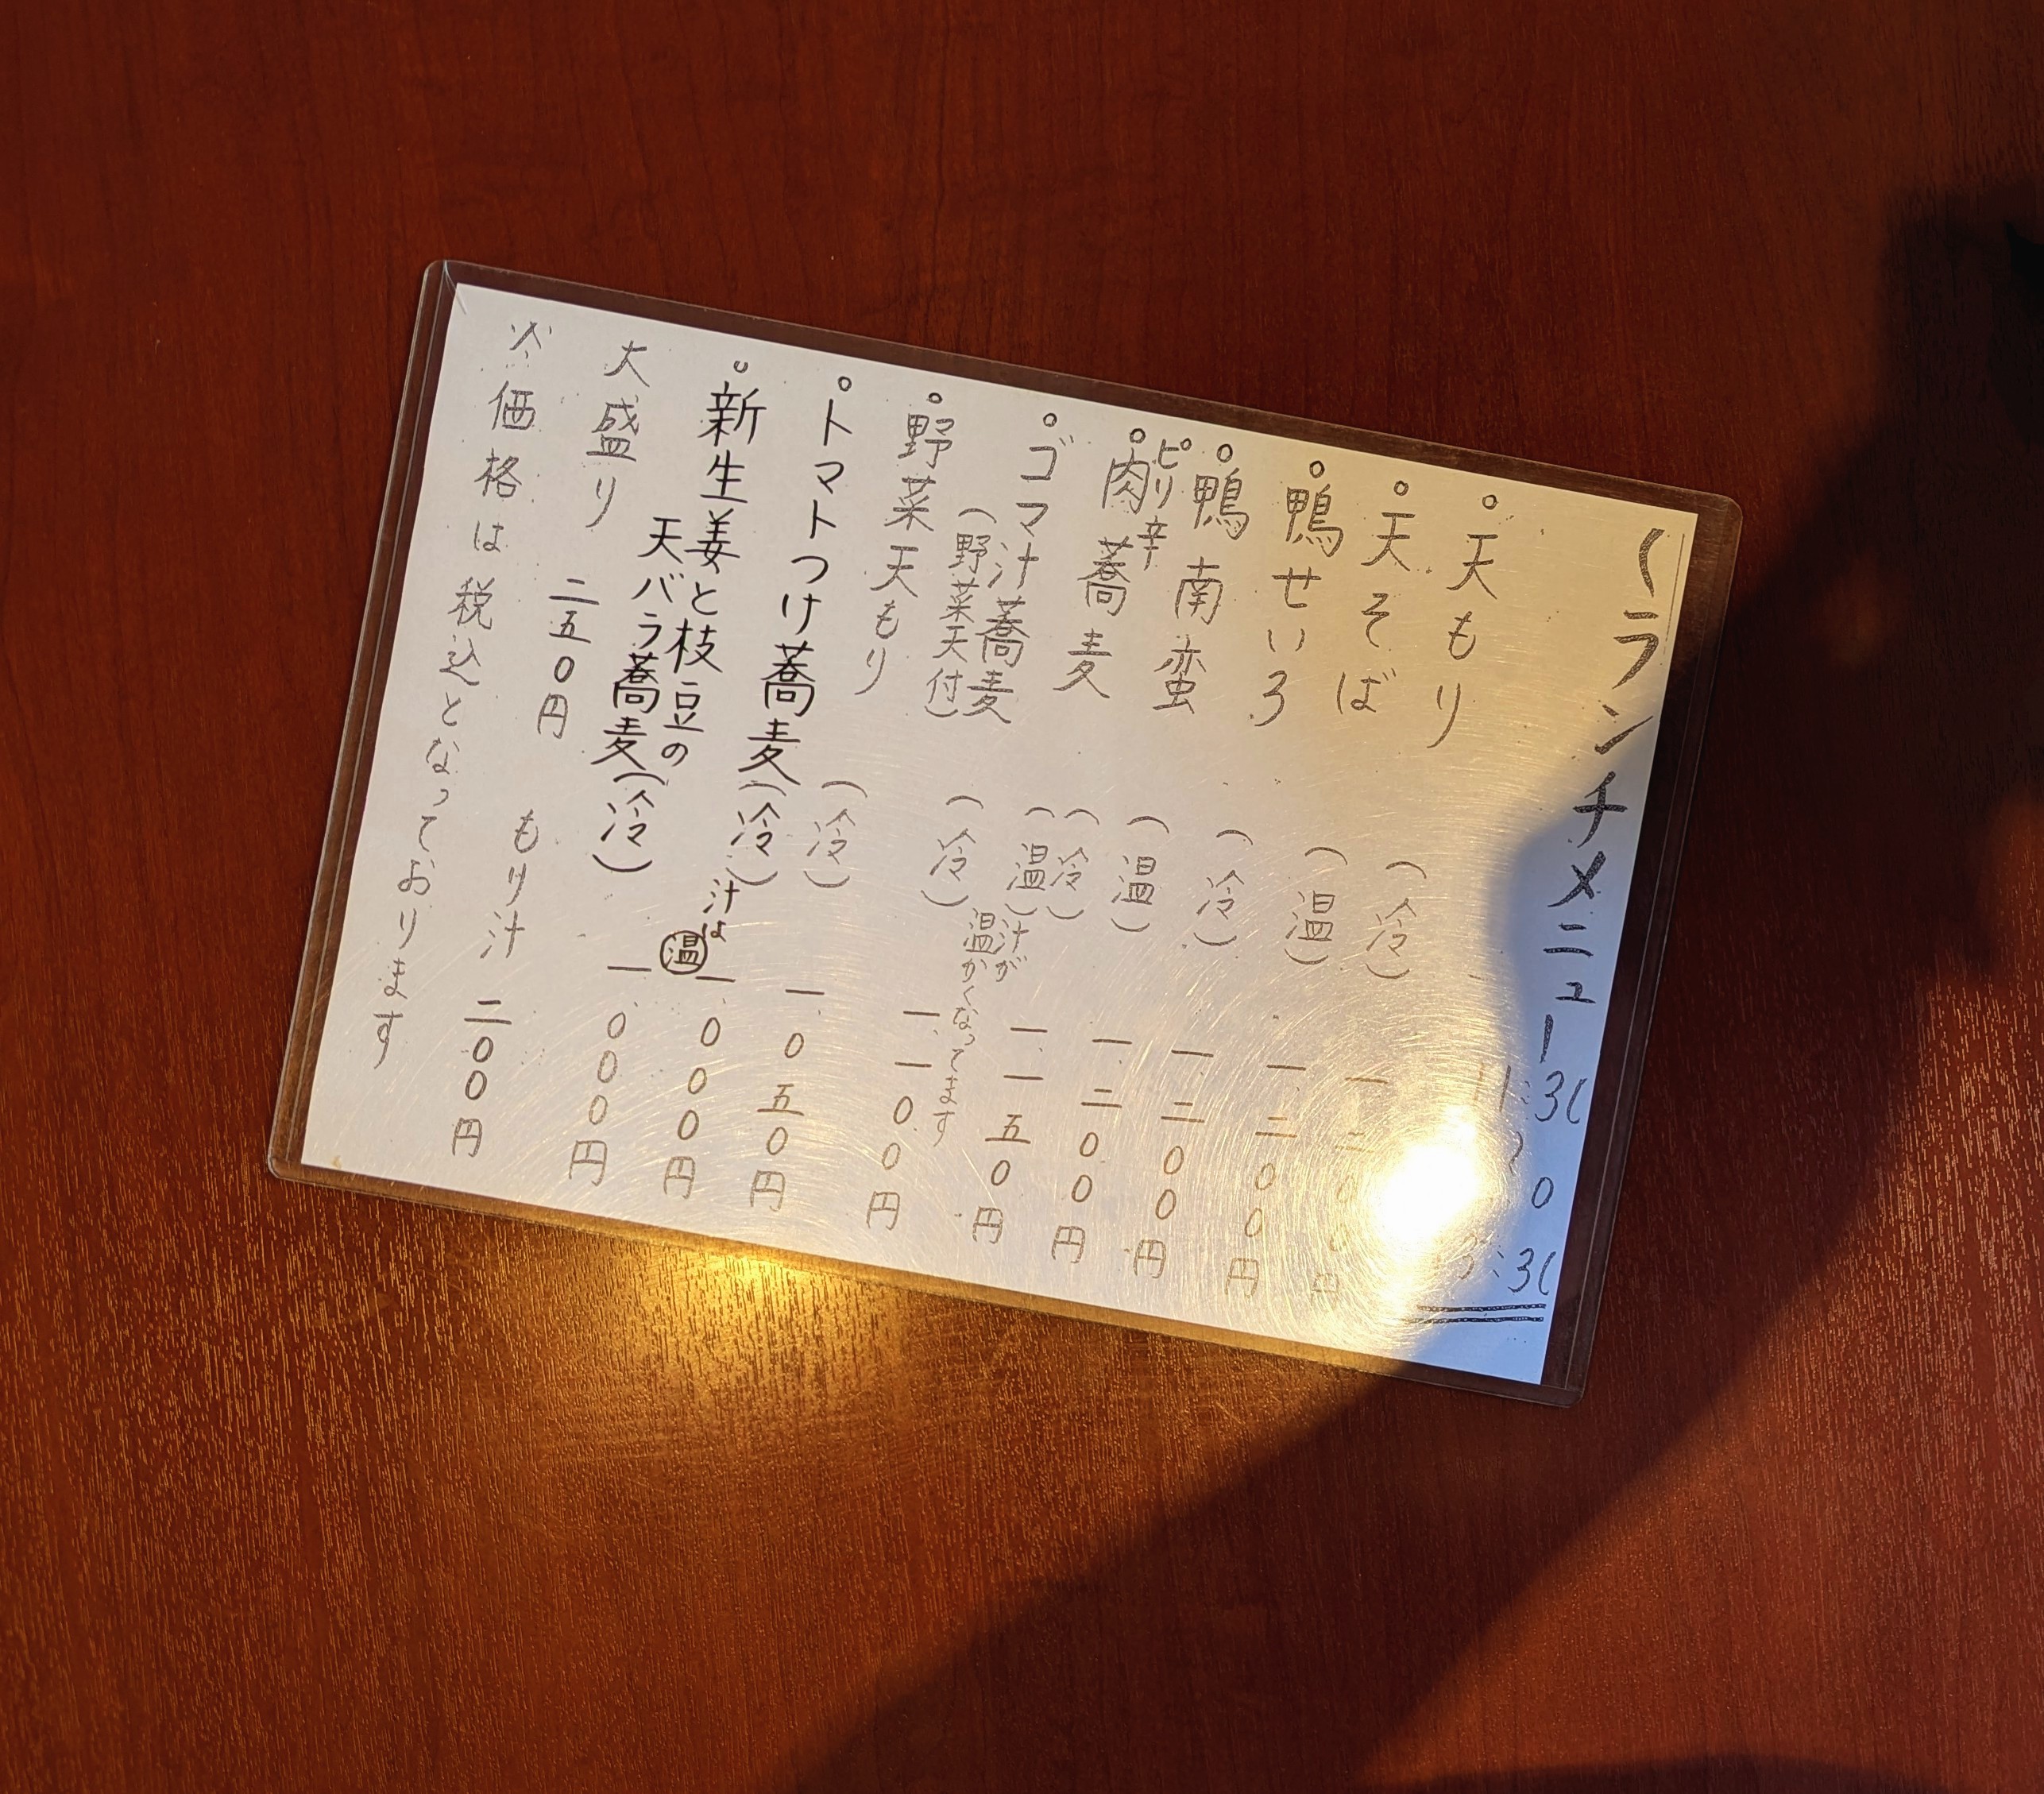 ランチメニュー 11:30
。天もり (冷) 一、二〇〇円
。天そば (温) 一、二〇〇円
。鴨せいろ (冷) 一、二〇〇円
。鴨南蛮 (温) 一、二〇〇円
。ピリ辛肉蕎麦 (冷)(温) 一、一五〇円
。ゴマ汁蕎麦 (冷) 汁が 一、一〇〇円
(野菜天付) 温かくなってます
。野菜天もり (冷) 一、〇五〇円
。トマトつけ蕎麦(冷)汁は温 一、〇〇〇円
。新生姜と枝豆の
天バラ蕎麦(冷) 一、〇〇〇円
大盛り 二五〇円 もり汁 二〇〇円
※価格は税込となっております